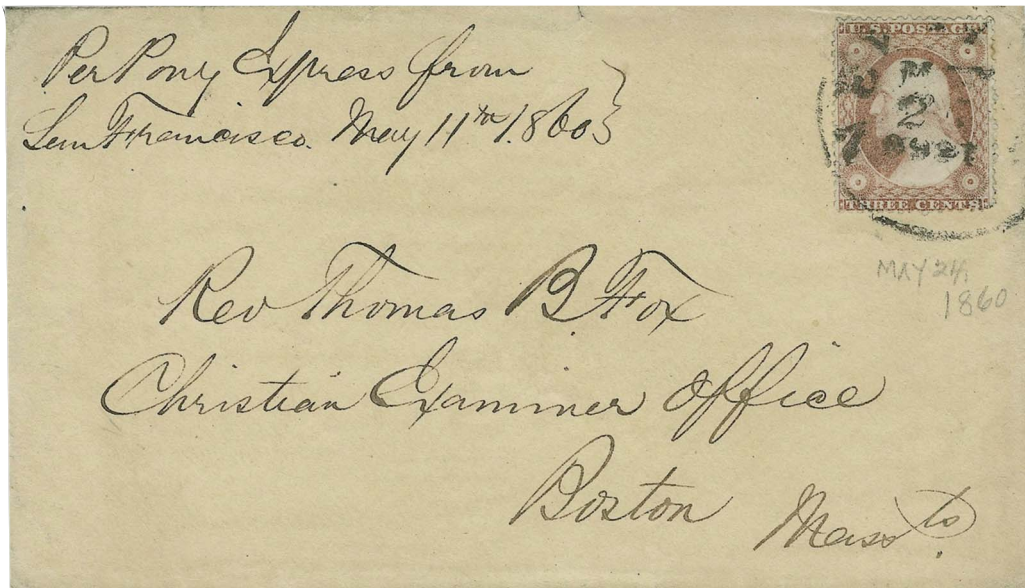 Per Pony Express from
San Francisco. May 11th 1860
U.S. POSTAGE
THREE CENTS
MAY 24,
1860
Rev Thomas B. Fox
Christian Examiner Office
Boston Massts.